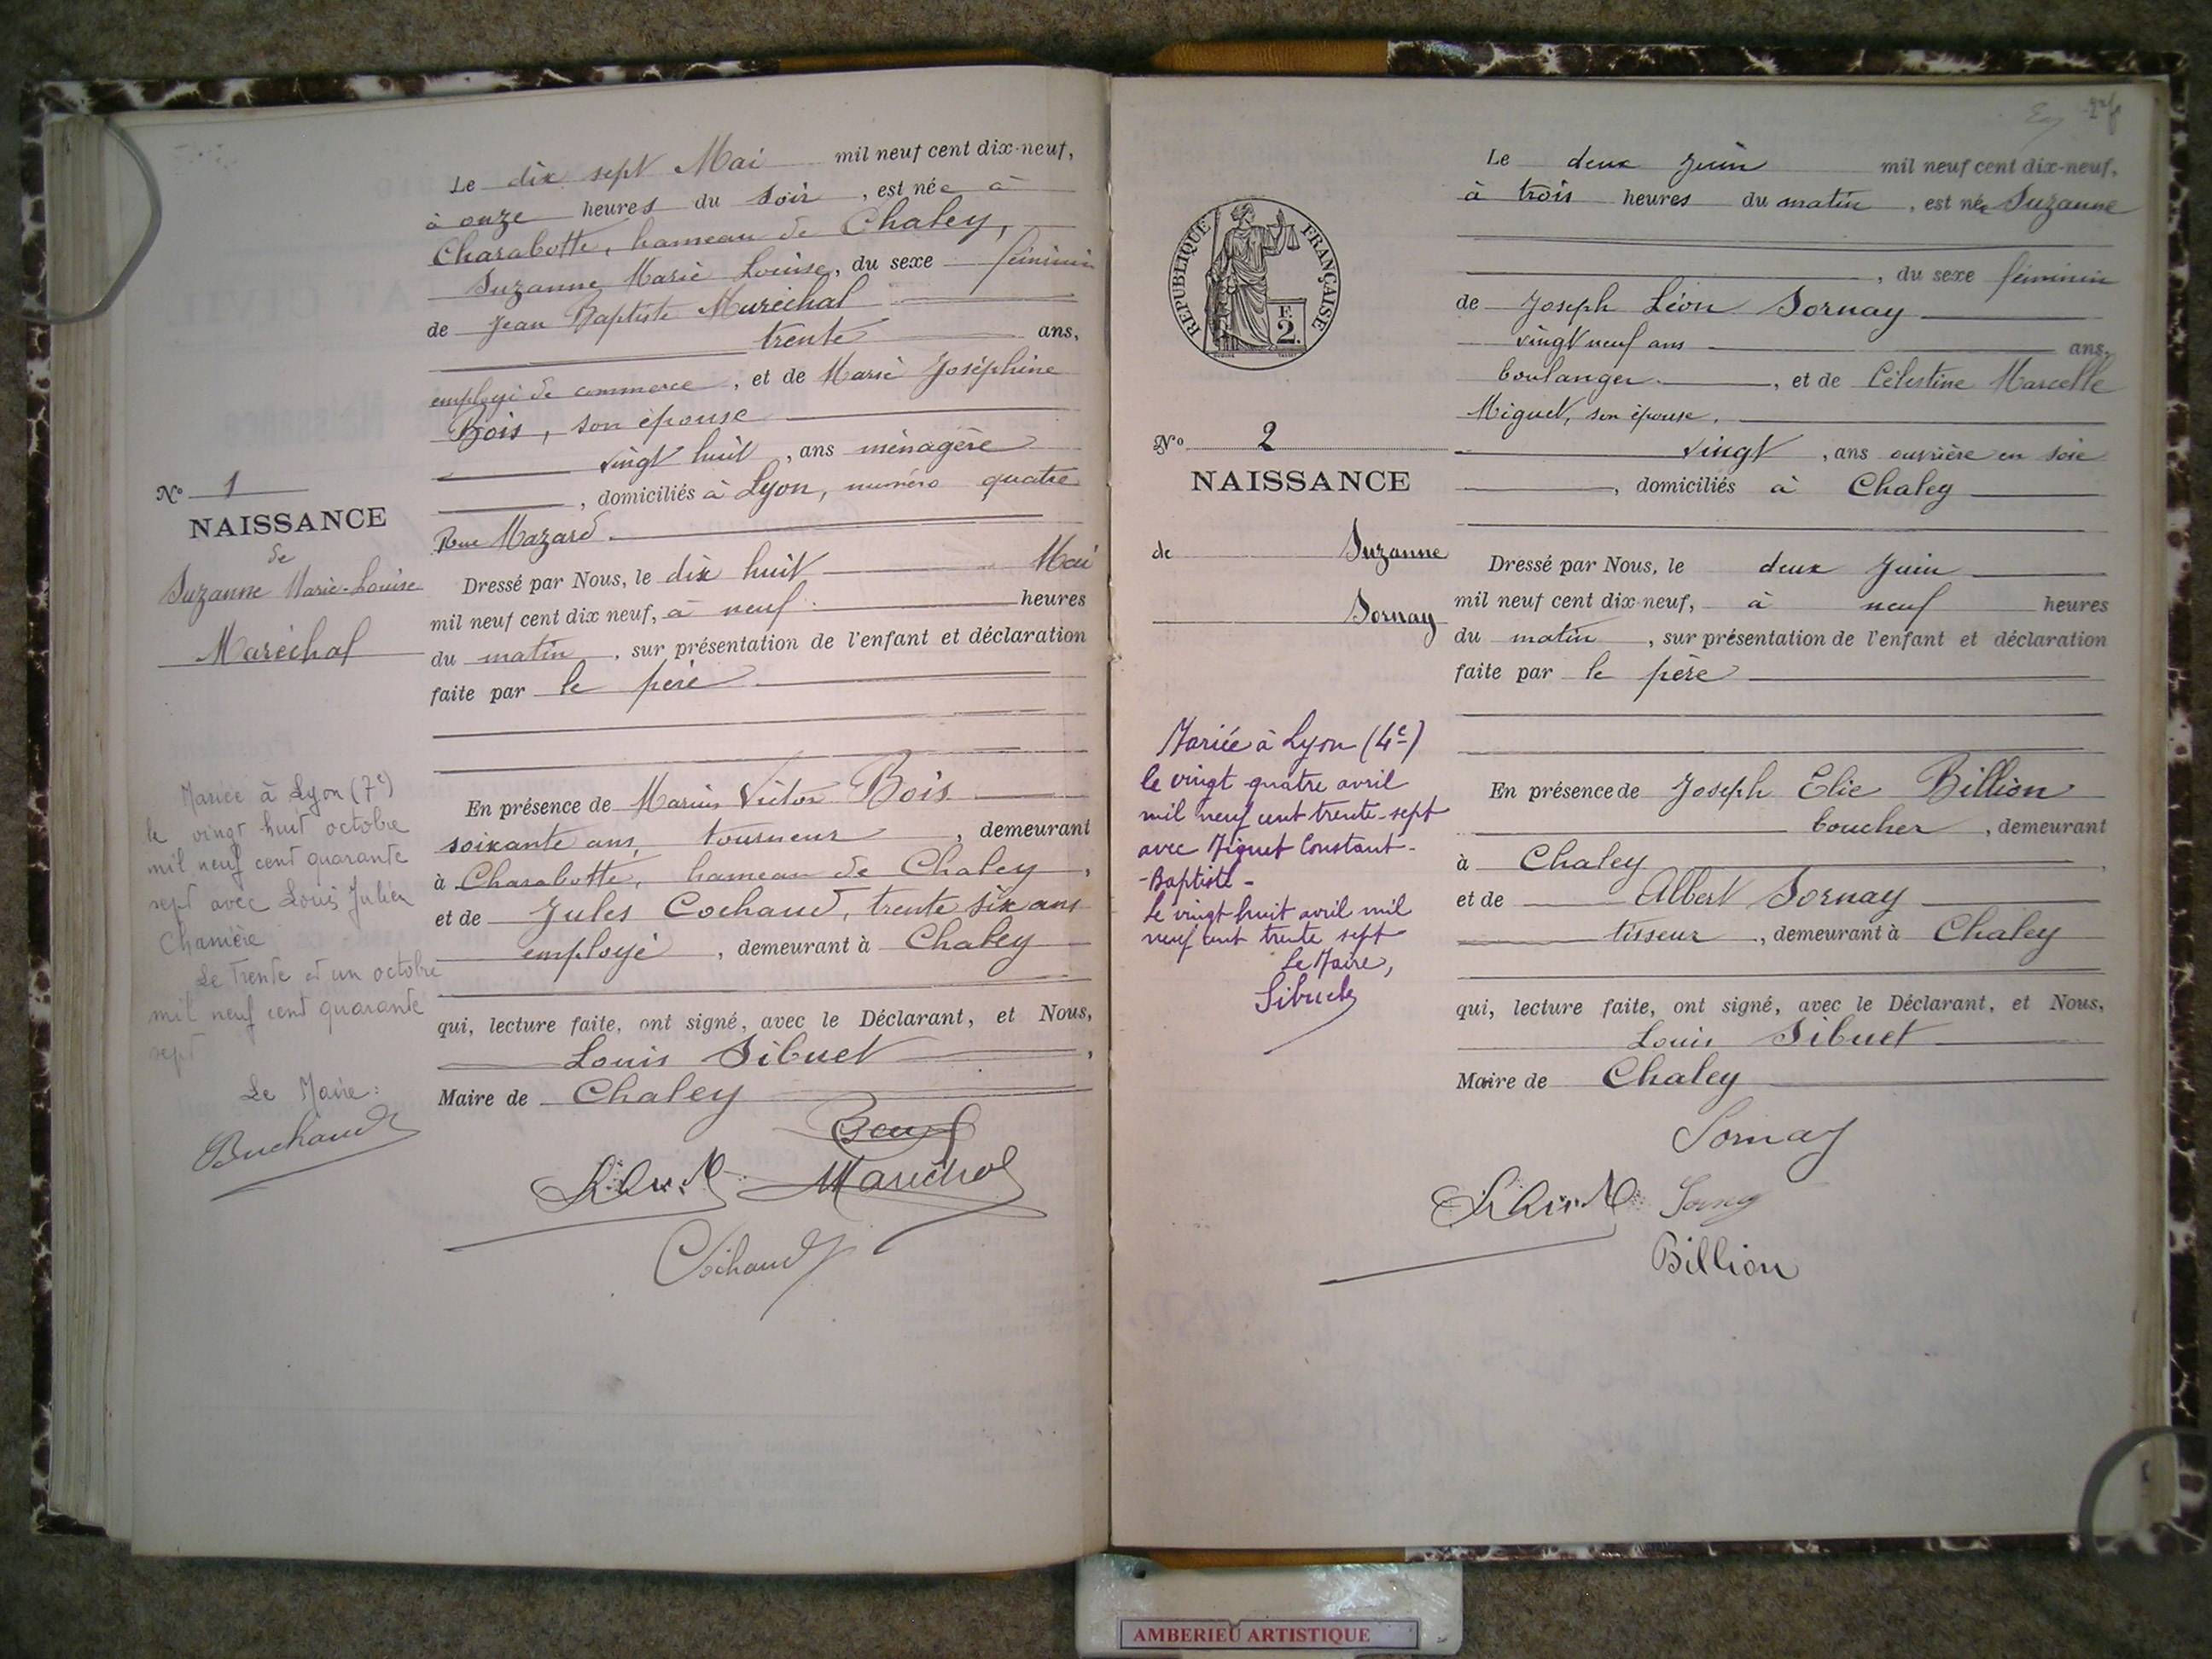 Le dix sept Mai mil neuf cent dix-neuf,
à onze heures du soir, est née à
Charabotte, hameau de Chaley,
Suzanne Marie Louise, du sexe féminin
de Jean Baptiste Maréchal
trente ans,
employé de commerce, et de Marie Joséphine
Bois, son épouse
vingt huit, ans ménagère
, domiciliés à Lyon, numéro quatre
Rue Mazard.
Dressé par Nous, le dix huit Mai
mil neuf cent dix neuf, à neuf heures
du matin, sur présentation de l'enfant et déclaration
faite par le père
En présence de Marius Victor Bois
soixante ans, tourneur, demeurant
à Charabotte, hameau de Chaley,
et de Jules Cochaud, trente six ans
employé, demeurant à Chaley
qui, lecture faite, ont signé, avec le Déclarant, et Nous,
Louis Sibuet,
Maire de Chaley
Maréchal
Cochaud
No 1
NAISSANCE
de
Suzanne Marie-Louise
Maréchal
Mariée à Lyon (7e)
le vingt huit octobre
mil neuf cent quarante
sept avec Louis Julien
Le trente et un octobre
mil neuf cent quarante
sept
Le Maire:
RÉPUBLIQUE FRANÇAISE
F.
2.
No 2
NAISSANCE
de Suzanne
Sornay
Mariée à Lyon (4e)
le vingt quatre avril
mil neuf cent trente-sept
avec Miguet Constant-
-Baptiste-
Le vingt huit avril mil
neuf cent trente sept
Le Maire,
Sibuet
Le deux Juin mil neuf cent dix-neuf,
à trois heures du matin, est née Suzanne
, du sexe féminin
de Joseph Léon Sornay
vingt neuf ans ans,
boulanger, et de Célestine Marcelle
Miguet, son épouse,
vingt, ans ouvrière en soie
, domiciliés à Chaley
Dressé par Nous, le deux Juin
mil neuf cent dix-neuf, à neuf heures
du matin, sur présentation de l'enfant et déclaration
faite par le père
En présence de Joseph Elie Billion
boucher, demeurant
à Chaley,
et de Albert Sornay
tisseur, demeurant à Chaley
qui, lecture faite, ont signé, avec le Déclarant, et Nous,
Louis Sibuet
Maire de Chaley
Sornay
Billion
AMBERIEU ARTISTIQUE